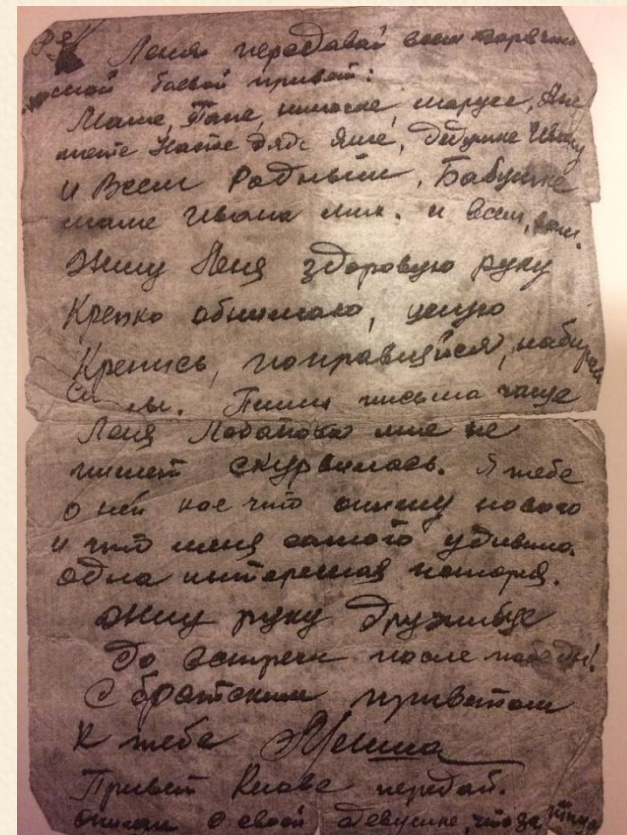 Леня передавай всем горячий
боевой привет:
Маме, Папе, Марусе, Яне
тете Насте дяде Яше, дедушке Ивану
и Всем Родным, Бабушке
маме Ивана Мих. и всем,
Жму Леня здоровую руку
Крепко обнимаю, целую
Крепись, поправляйся, набирай
Си лы. Пиши письма чаще
Леня Лобанова мне не
пишет скурвилась. Я тебе
о ней кое что опишу нового
и что меня самого удивило.
одна интересная
Жму руку
До встречи после победы!
С братским приветом
к тебе
Привет передай.
опиши о своей девушке, что за